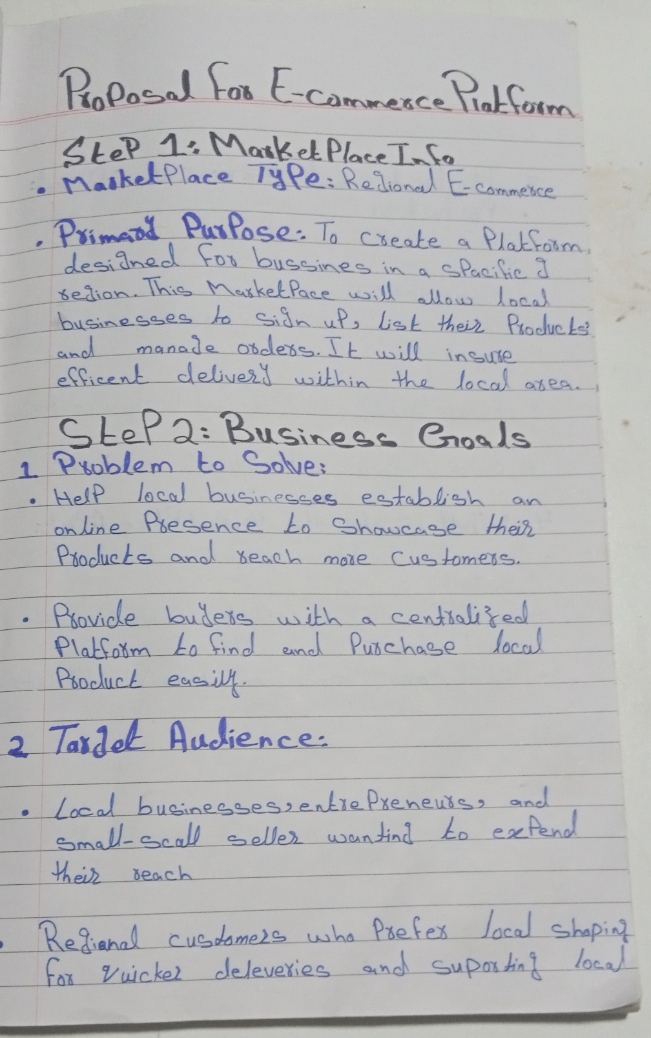 Proposal for E-commerce Platform
Step 1: MarketPlace Info
• MarketPlace Type: Regional E-commerce
• Primary Purpose: To create a Platform
designed for bussines in a spacific
region. This MarketPace will allow local
businesses to sign up, list their Products
and manage orders. It will insure
efficent delivery within the local area.
Step 2: Business Goals
1 Problem to Solve:
• Help local businesses establish an
online Presence to Showcase their
Products and reach more Customers.
• Provide buyers with a centralized
Platform to find and Purchase local
Product easily.
2 Target Audience:
• Local businesses, entrepreneurs, and
small-scall seller wanting to expend
their reach
• Regianal cusdomers who Prefer local shoping
for quicker deleveries and suporting local